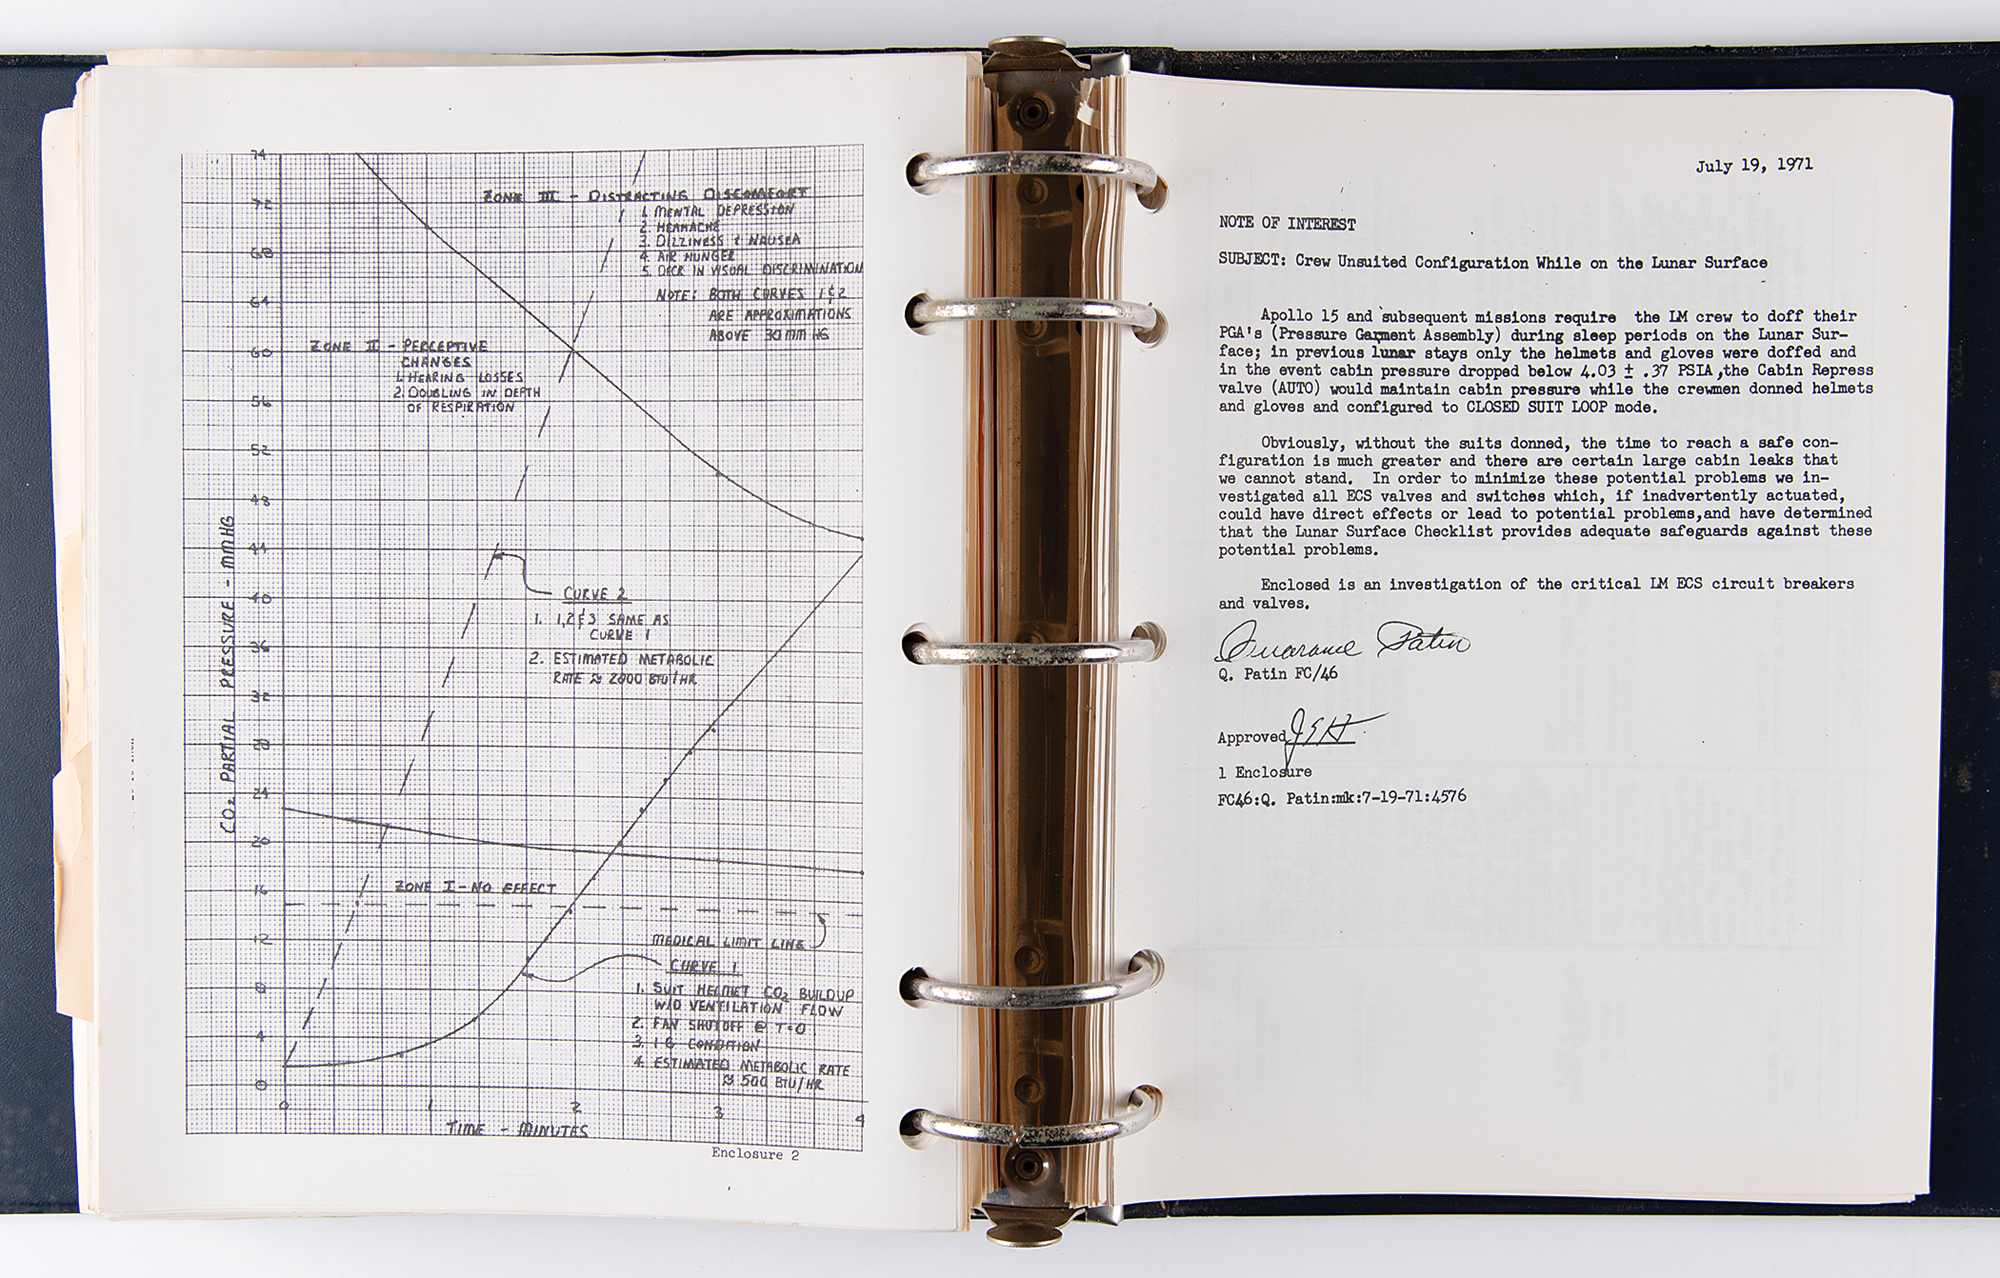 74
72
68
64
60
56
52
48
44
40
36
32
28
24
20
16
12
8
4
0
CO₂ PARTIAL PRESSURE - MMHG
ZONE III - DISTRACTING DISCOMFORT
1. MENTAL DEPRESSION
2. HEADACHE
3. DIZZINESS & NAUSEA
4. AIR HUNGER
5. DECR IN VISUAL DISCRIMINATION
NOTE: BOTH CURVES 1 & 2
ARE APPROXIMATIONS
ABOVE 30 MM HG
ZONE II - PERCEPTIVE
CHANGES
1. HEARING LOSSES
2. DOUBLING IN DEPTH
OF RESPIRATION
CURVE 2
1. 1, 2 & 3 SAME AS
CURVE 1
2. ESTIMATED METABOLIC
RATE ≈ 2000 BTU/HR
ZONE I - NO EFFECT
MEDICAL LIMIT LINE
CURVE 1
1. SUIT HELMET CO₂ BUILDUP
W/O VENTILATION FLOW
2. FAN SHUTOFF @ T=0
3. 1 G CONDITION
4. ESTIMATED METABOLIC RATE
≈ 500 BTU/HR
0 1 2 3 4
TIME - MINUTES
Enclosure 2
July 19, 1971
NOTE OF INTEREST
SUBJECT: Crew Unsuited Configuration While on the Lunar Surface
Apollo 15 and subsequent missions require the LM crew to doff their
PGA's (Pressure Garment Assembly) during sleep periods on the Lunar Sur-
face; in previous lunar stays only the helmets and gloves were doffed and
in the event cabin pressure dropped below 4.03 ± .37 PSIA,the Cabin Repress
valve (AUTO) would maintain cabin pressure while the crewmen donned helmets
and gloves and configured to CLOSED SUIT LOOP mode.
Obviously, without the suits donned, the time to reach a safe con-
figuration is much greater and there are certain large cabin leaks that
we cannot stand. In order to minimize these potential problems we in-
vestigated all ECS valves and switches which, if inadvertently actuated,
could have direct effects or lead to potential problems,and have determined
that the Lunar Surface Checklist provides adequate safeguards against these
potential problems.
Enclosed is an investigation of the critical LM ECS circuit breakers
and valves.
Patin
Q. Patin FC/46
Approved JSH
1 Enclosure
FC46:Q. Patin:mk:7-19-71:4576